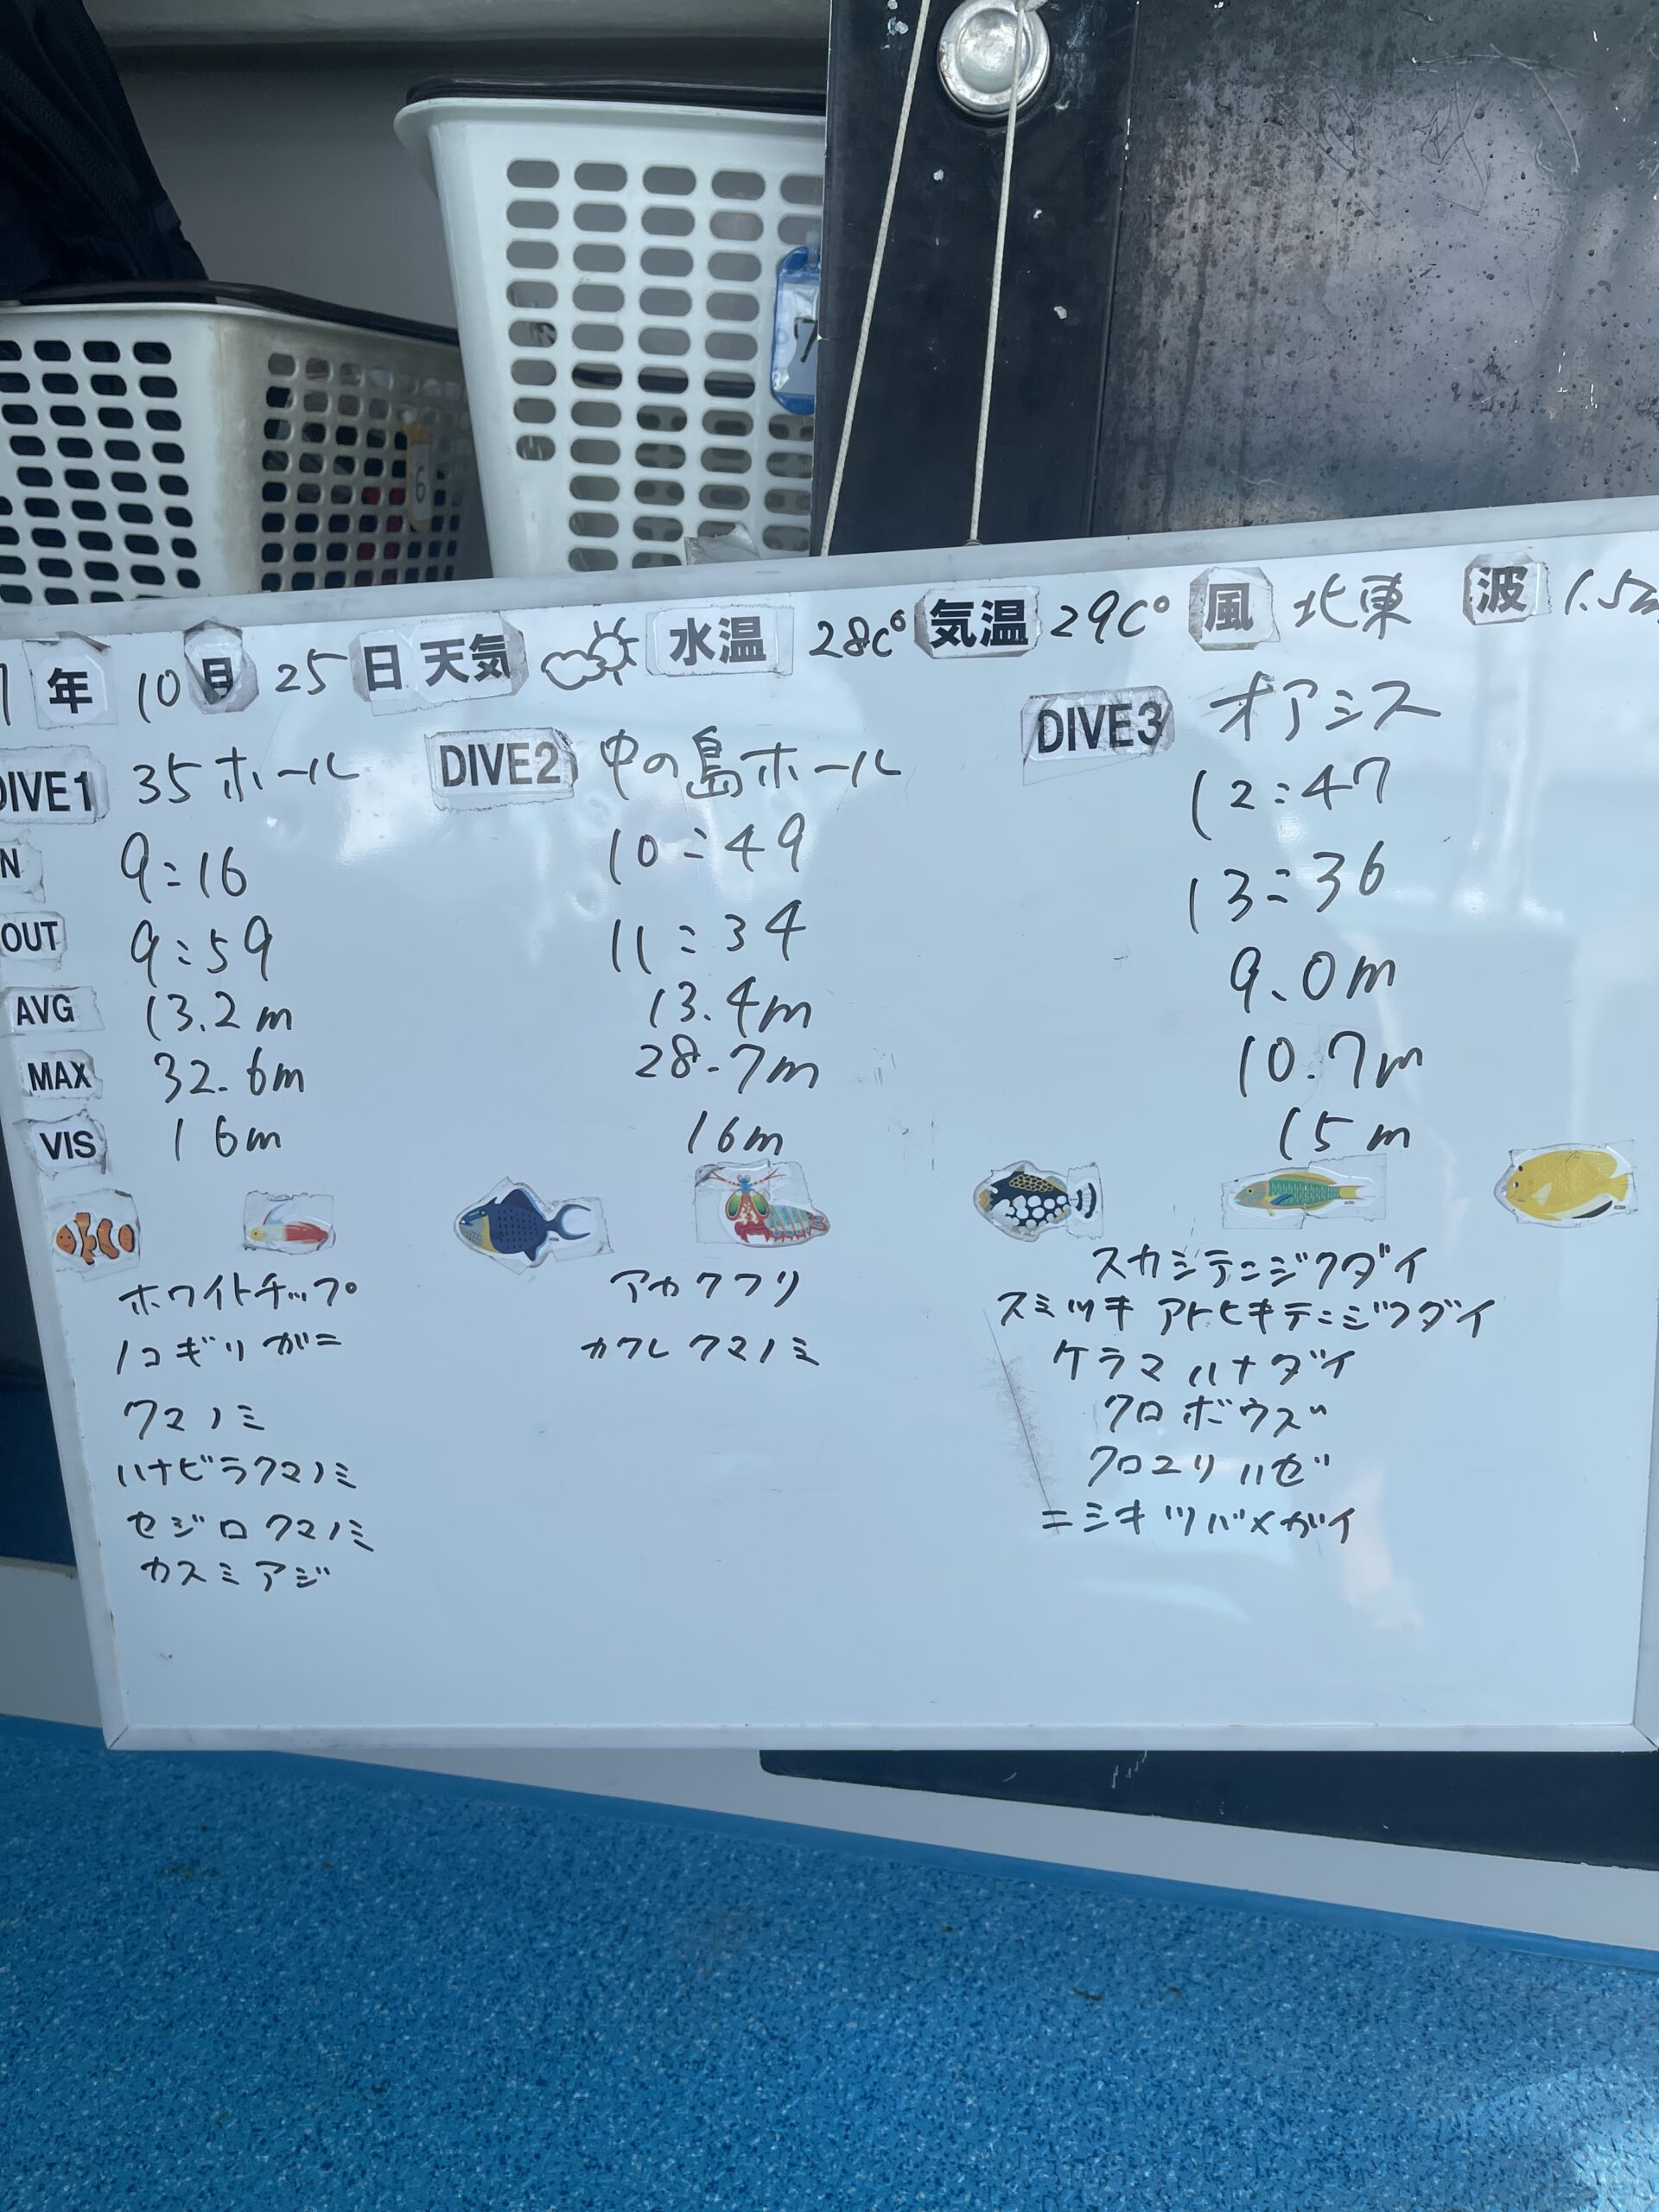 7
6
年 10月 25日 天気 水温 28c° 気温 29c° 風 北東 波 1.5m
DIVE1 35ホール DIVE2 中の島ホール DIVE3 オアシス
IN 9:16 10:49 12:47
OUT 9:59 11:34 13:36
AVG 13.2m 13.4m 9.0m
MAX 32.6m 28.7m 10.7m
VIS 16m 16m 15m
ホワイトチップ
ノコギリガニ
クマノミ
ハナビラクマノミ
セジロクマノミ
カスミアジ
アカククリ
カクレクマノミ
スカシテンジクダイ
スミツキアトヒキテンジクダイ
ケラマハナダイ
クロボウズ
クロユリハゼ
ニシキツバメガイ